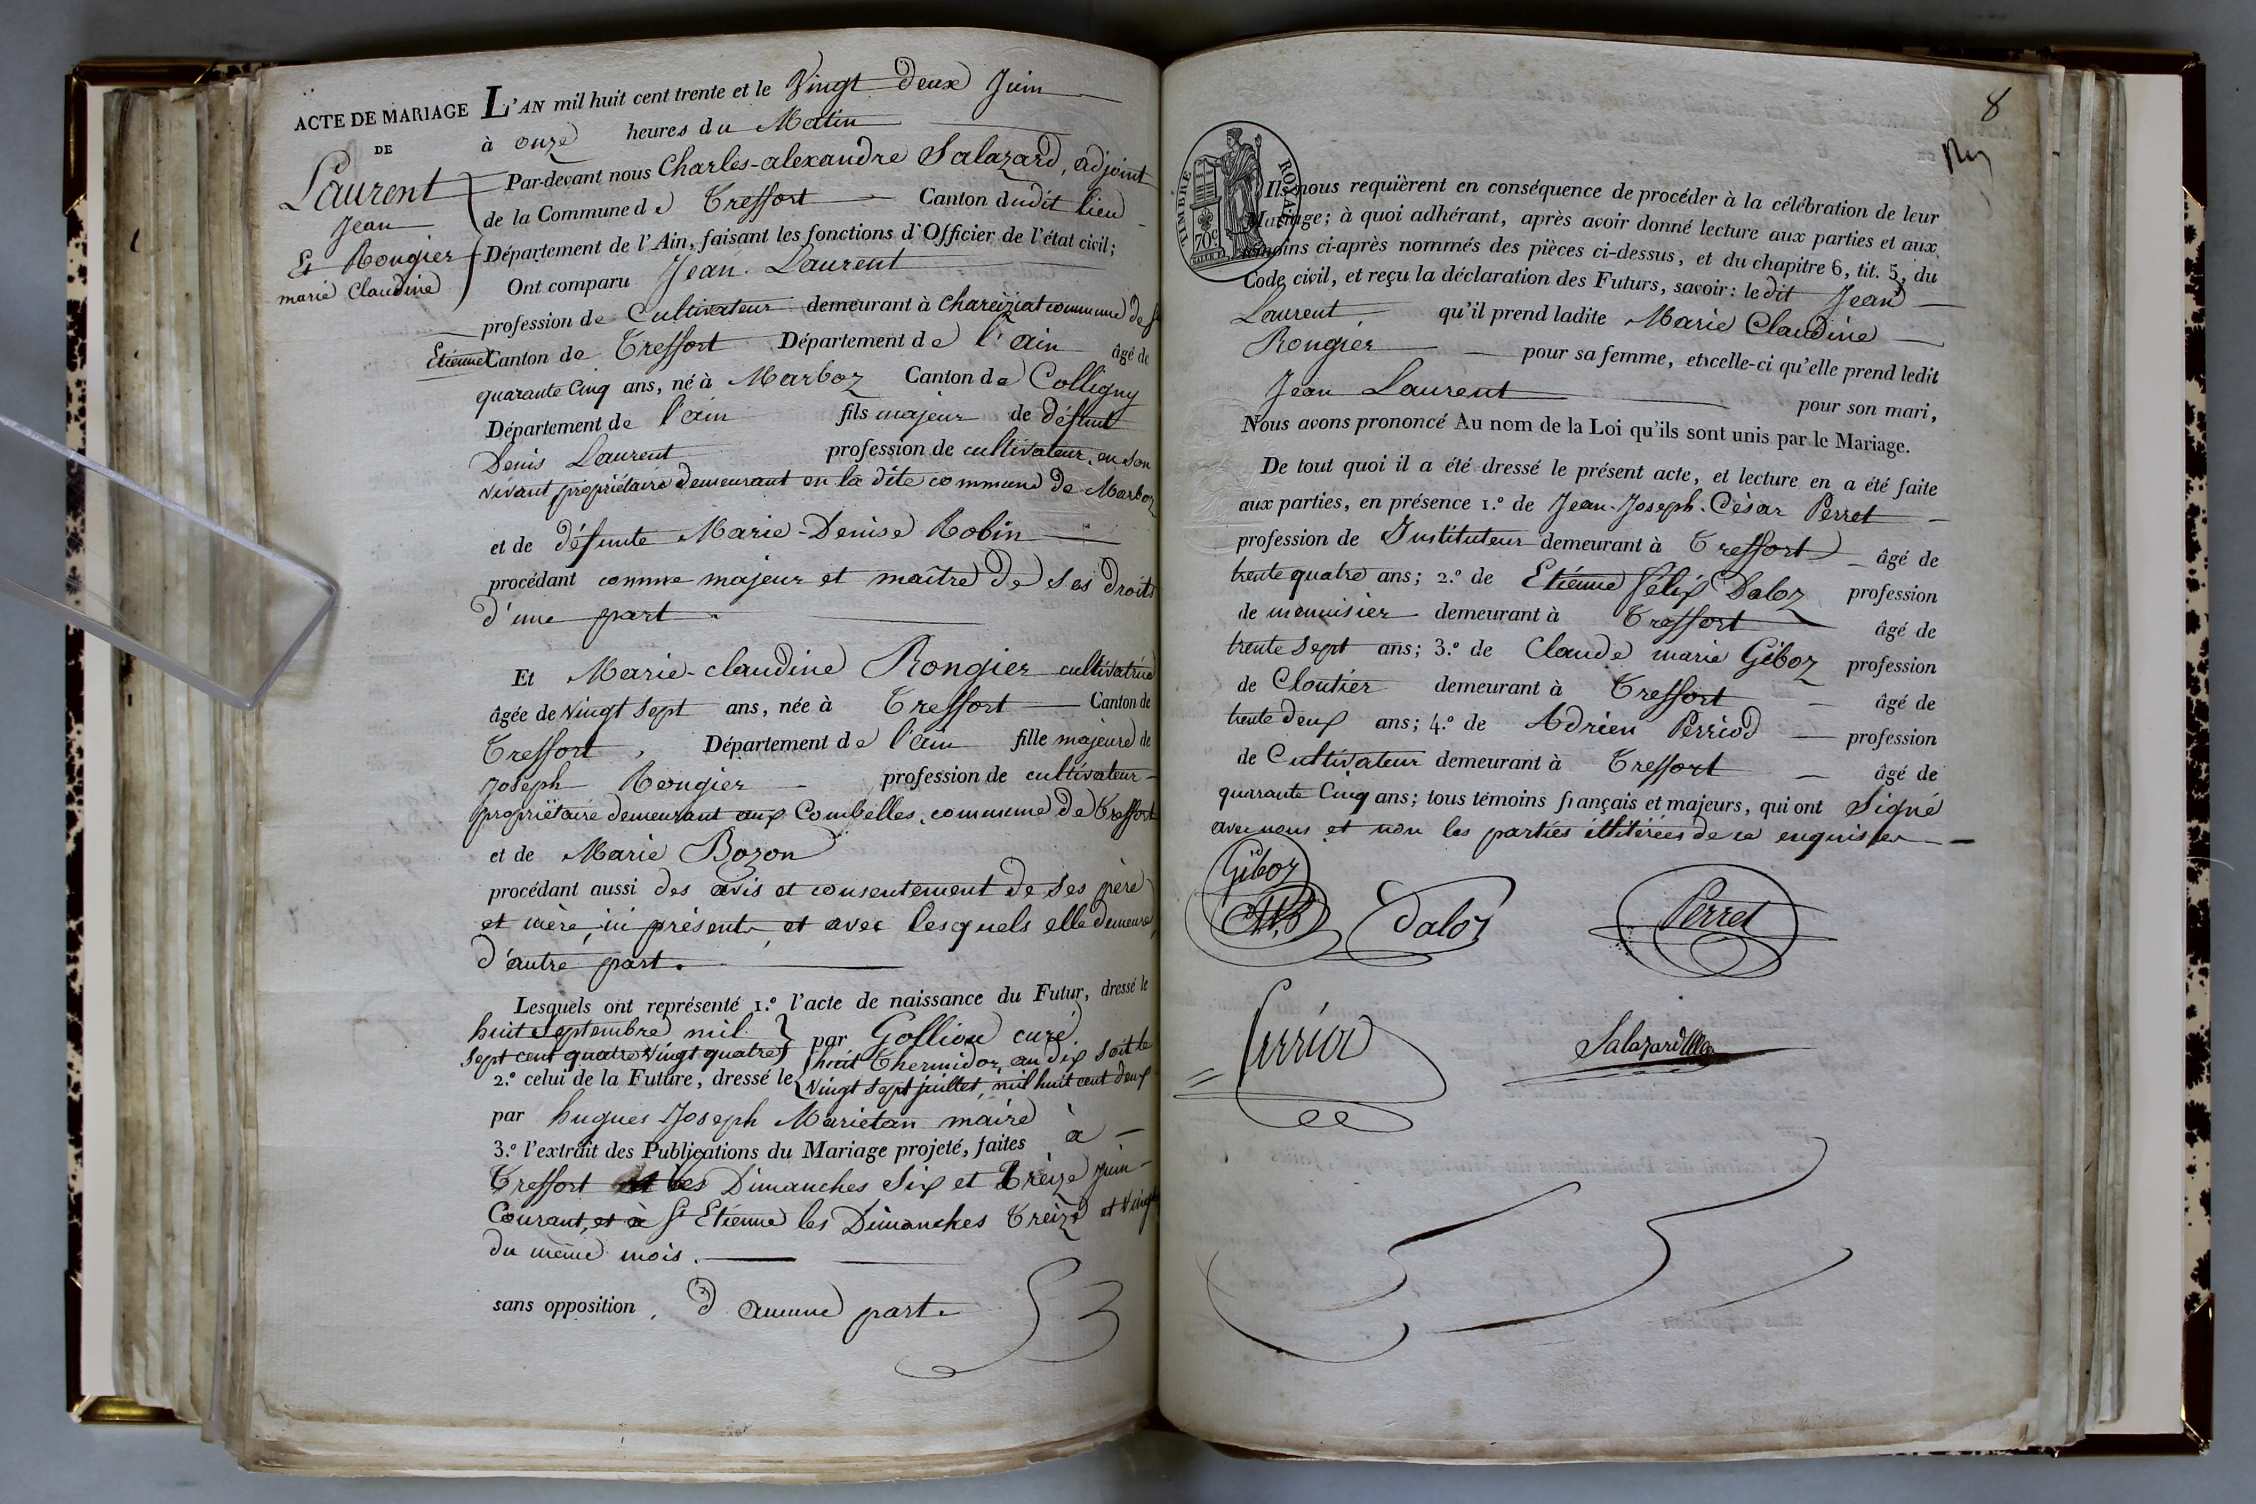 ACTE DE MARIAGE
DE
Laurent
Jean
Et Rongier
marie Claudine
L'AN mil huit cent trente et le Vingt deux Juin
à onze heures du Matin
Par-devant nous Charles-alexandre Salazard, adjoint
de la Commune de Treffort Canton dudit lieu
Département de l'Ain, faisant les fonctions d'Officier de l'état civil;
Ont comparu Jean Laurent
profession de Cultivateur demeurant à chareiziat commune de St
Etienne Canton de Treffort Département de l'ain âgé de
quarante Cinq ans, né à Marboz Canton de Colligny
Département de l'ain fils majeur de défunt
Denis Laurent profession de cultivateur, en son
vivant propriétaire demeurant en la dite commune de Marboz
et de défunte Marie-Denise Robin
procédant comme majeur et maître de ses droits
d'une part.
Et Marie-claudine Rongier cultivatrice
âgée de vingt sept ans, née à Treffort Canton de
Treffort, Département de l'ain fille majeure de
Joseph Rongier profession de cultivateur
propriétaire demeurant aux Combelles, commune de Treffort
et de Marie Bozon
procédant aussi des avis et consentement de ses père
et mère, ici présents, et avec lesquels elle demeure,
d'autre part.
Lesquels ont représenté 1.º l'acte de naissance du Futur, dressé le
huit Septembre mil sept cent quatre vingt quatre par Gollion curé
2.º celui de la Future, dressé le huit Thermidor an dix soit le
vingt sept juillet, mil huit cent deux
par hugues Joseph Marietan maire
3.º l'extrait des Publications du Mariage projeté, faites à
Treffort les Dimanches Six et Treize Juin
Courant, et à St Etienne les Dimanches Treize et Vingt
du même mois.
sans opposition, d'aucune part.
8
TIMBRE ROYAL
70c
Ils nous requièrent en conséquence de procéder à la célébration de leur
Mariage; à quoi adhérant, après avoir donné lecture aux parties et aux
témoins ci-après nommés des pièces ci-dessus, et du chapitre 6, tit. 5, du
Code civil, et reçu la déclaration des Futurs, savoir: ledit Jean
Laurent qu'il prend ladite Marie Claudine
Rongier pour sa femme, et celle-ci qu'elle prend ledit
Jean Laurent pour son mari,
Nous avons prononcé Au nom de la Loi qu'ils sont unis par le Mariage.
De tout quoi il a été dressé le présent acte, et lecture en a été faite
aux parties, en présence 1.º de Jean-Joseph-Cèsar Perret
profession de Instituteur demeurant à Treffort âgé de
trente quatre ans; 2.º de Etienne Félix Daloz profession
de menuisier demeurant à Treffort âgé de
trente sept ans; 3.º de Claude marie Giboz profession
de Cloutier demeurant à Treffort âgé de
trente deux ans; 4.º de Adrien Perriod profession
de Cultivateur demeurant à Treffort âgé de
quarante Cinq ans; tous témoins français et majeurs, qui ont Signé
avec nous et non les parties illitérées de ce enquises
Giboz
Daloz
Perret
Salazard